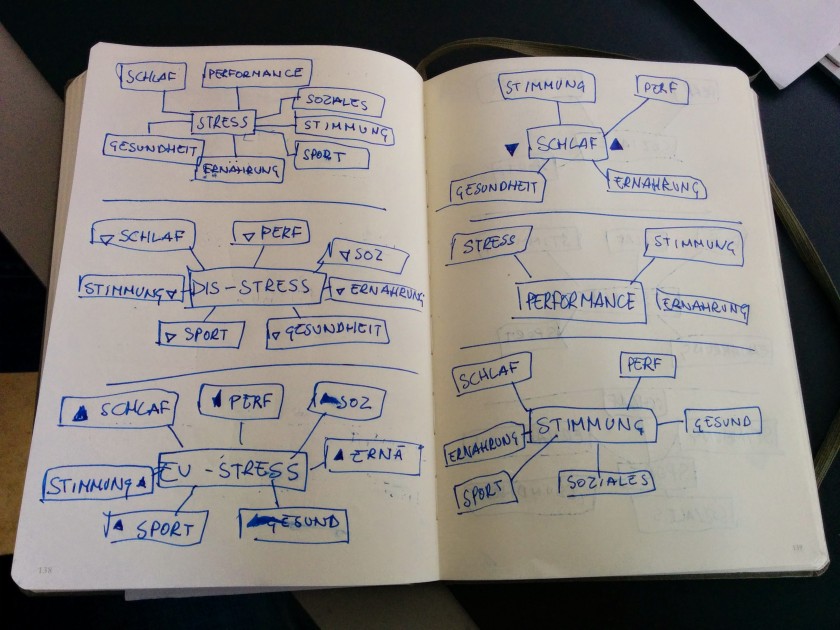 SCHLAF
PERFORMANCE
SOZIALES
STRESS
STIMMUNG
GESUNDHEIT
ERNÄHRUNG
SPORT
▽ SCHLAF
▽ PERF
▽ SOZ
STIMMUNG ▽
DIS-STRESS
▽ ERNÄHRUNG
▽ SPORT
▽ GESUNDHEIT
▲ SCHLAF
PERF
▲ SOZ
▲ ERNÄ
STIMMUNG ▲
EU-STRESS
▲ SPORT
GESUND
138
STIMMUNG
PERF
▼ SCHLAF ▲
GESUNDHEIT
ERNÄHRUNG
STRESS
STIMMUNG
PERFORMANCE
ERNÄHRUNG
SCHLAF
PERF
STIMMUNG
GESUND
ERNÄHRUNG
SPORT
SOZIALES
139